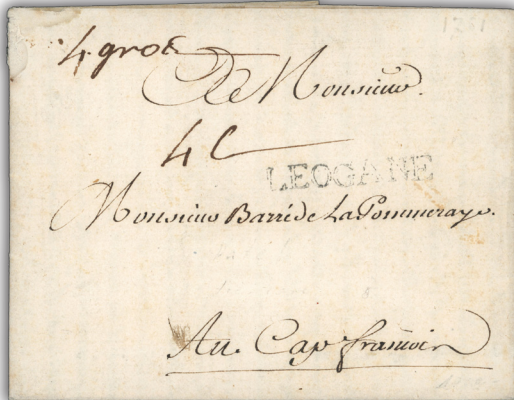 1751
4 gros
De Monsieur.
4 L
LEOGANE
Monsieur Barré de La Pommeraye.
Au Cap françois